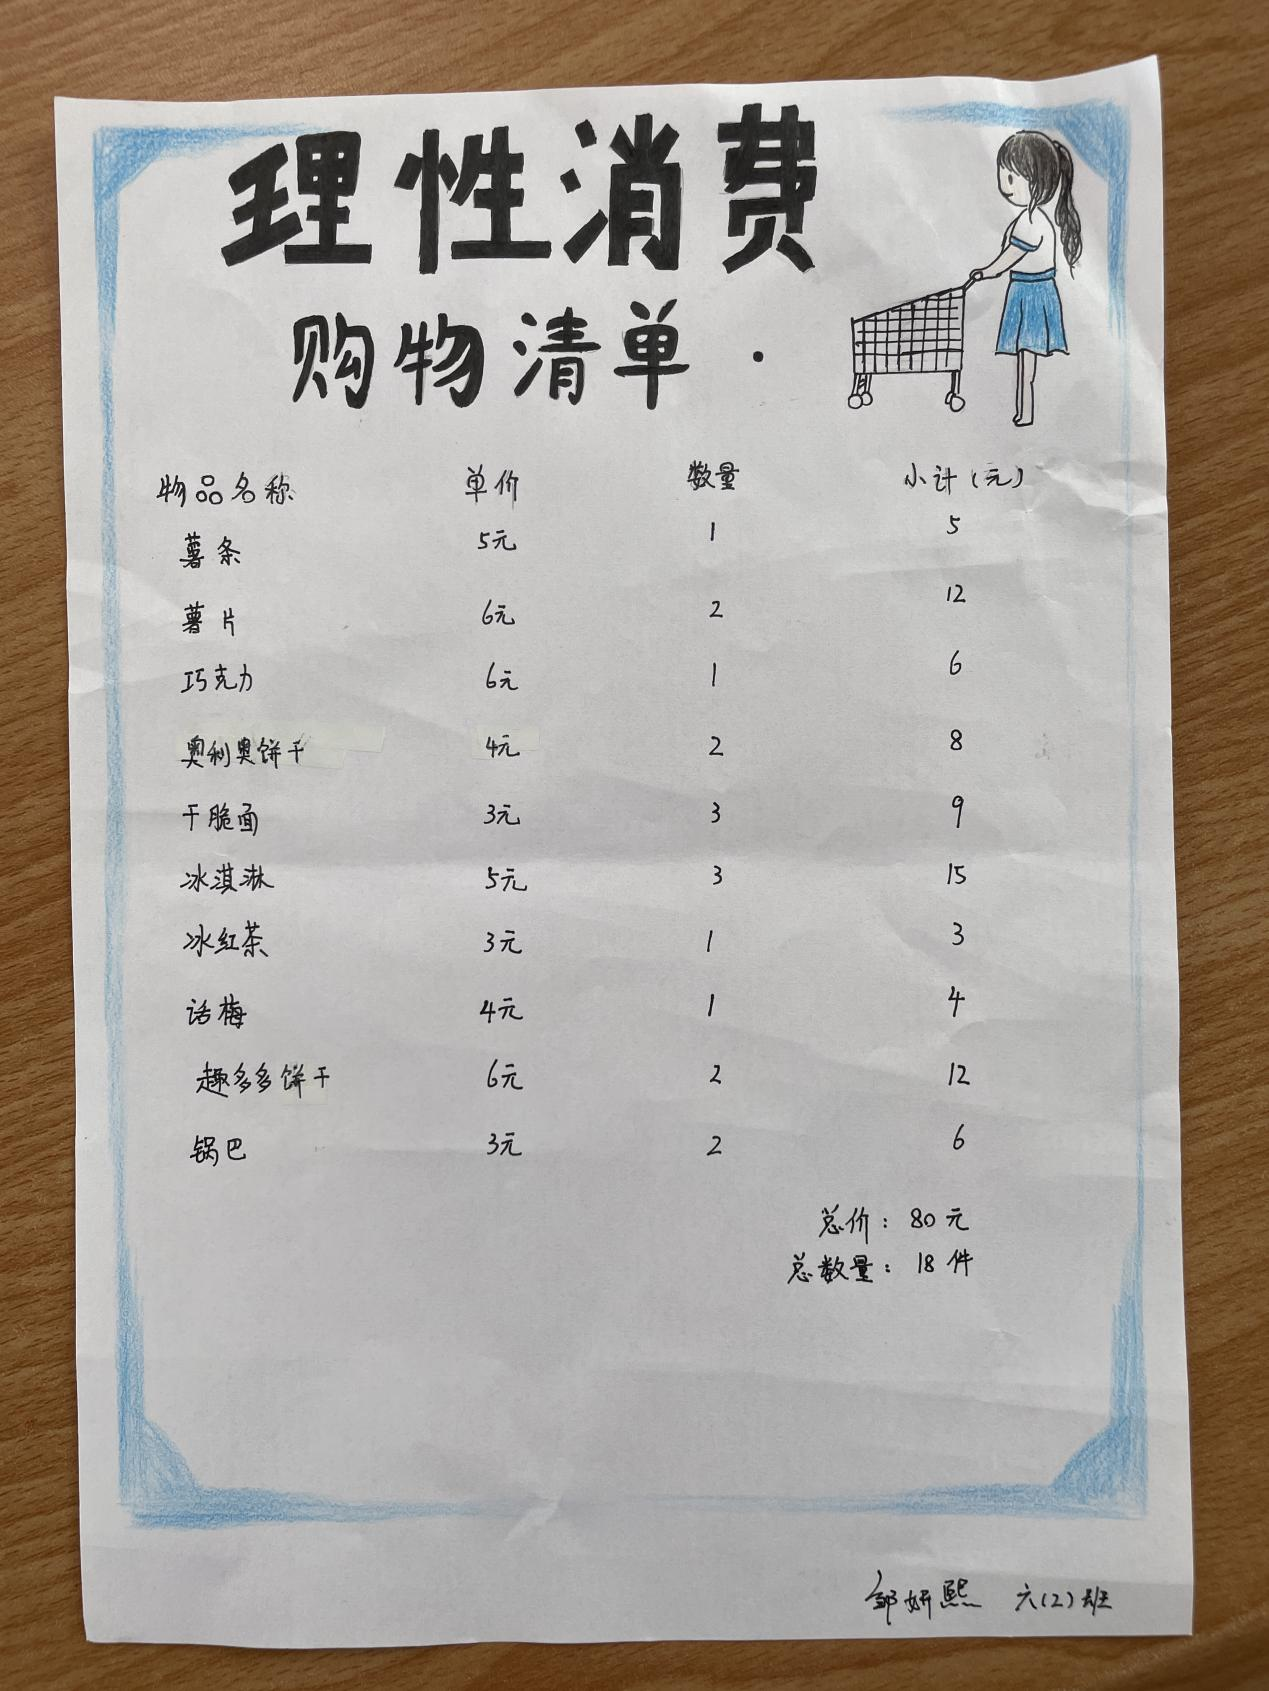 理性消费
购物清单·
物品名称 单价 数量 小计(元)
薯条 5元 1 5
薯片 6元 2 12
巧克力 6元 1 6
奥利奥饼干 4元 2 8
干脆面 3元 3 9
冰淇淋 5元 3 15
冰红茶 3元 1 3
话梅 4元 1 4
趣多多饼干 6元 2 12
锅巴 3元 2 6
总价：80元
总数量：18件
邹妍熙 六(2)班